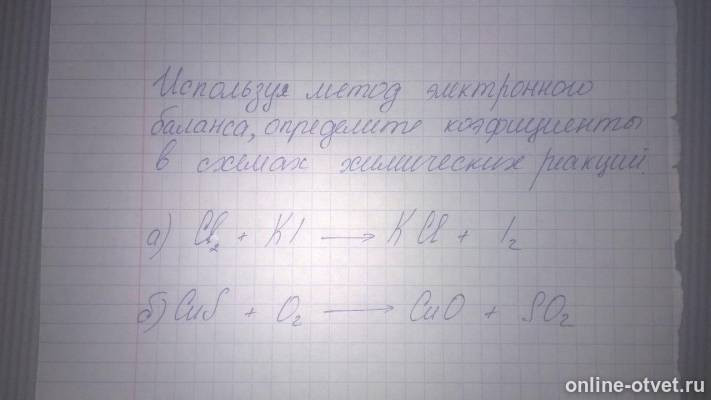 Используя метод электронного
баланса, определите коэфициенты
в схемах химических реакций.
а) Cl₂ + KI → KCl + I₂
б) CuS + O₂ → CuO + SO₂
online-otvet.ru